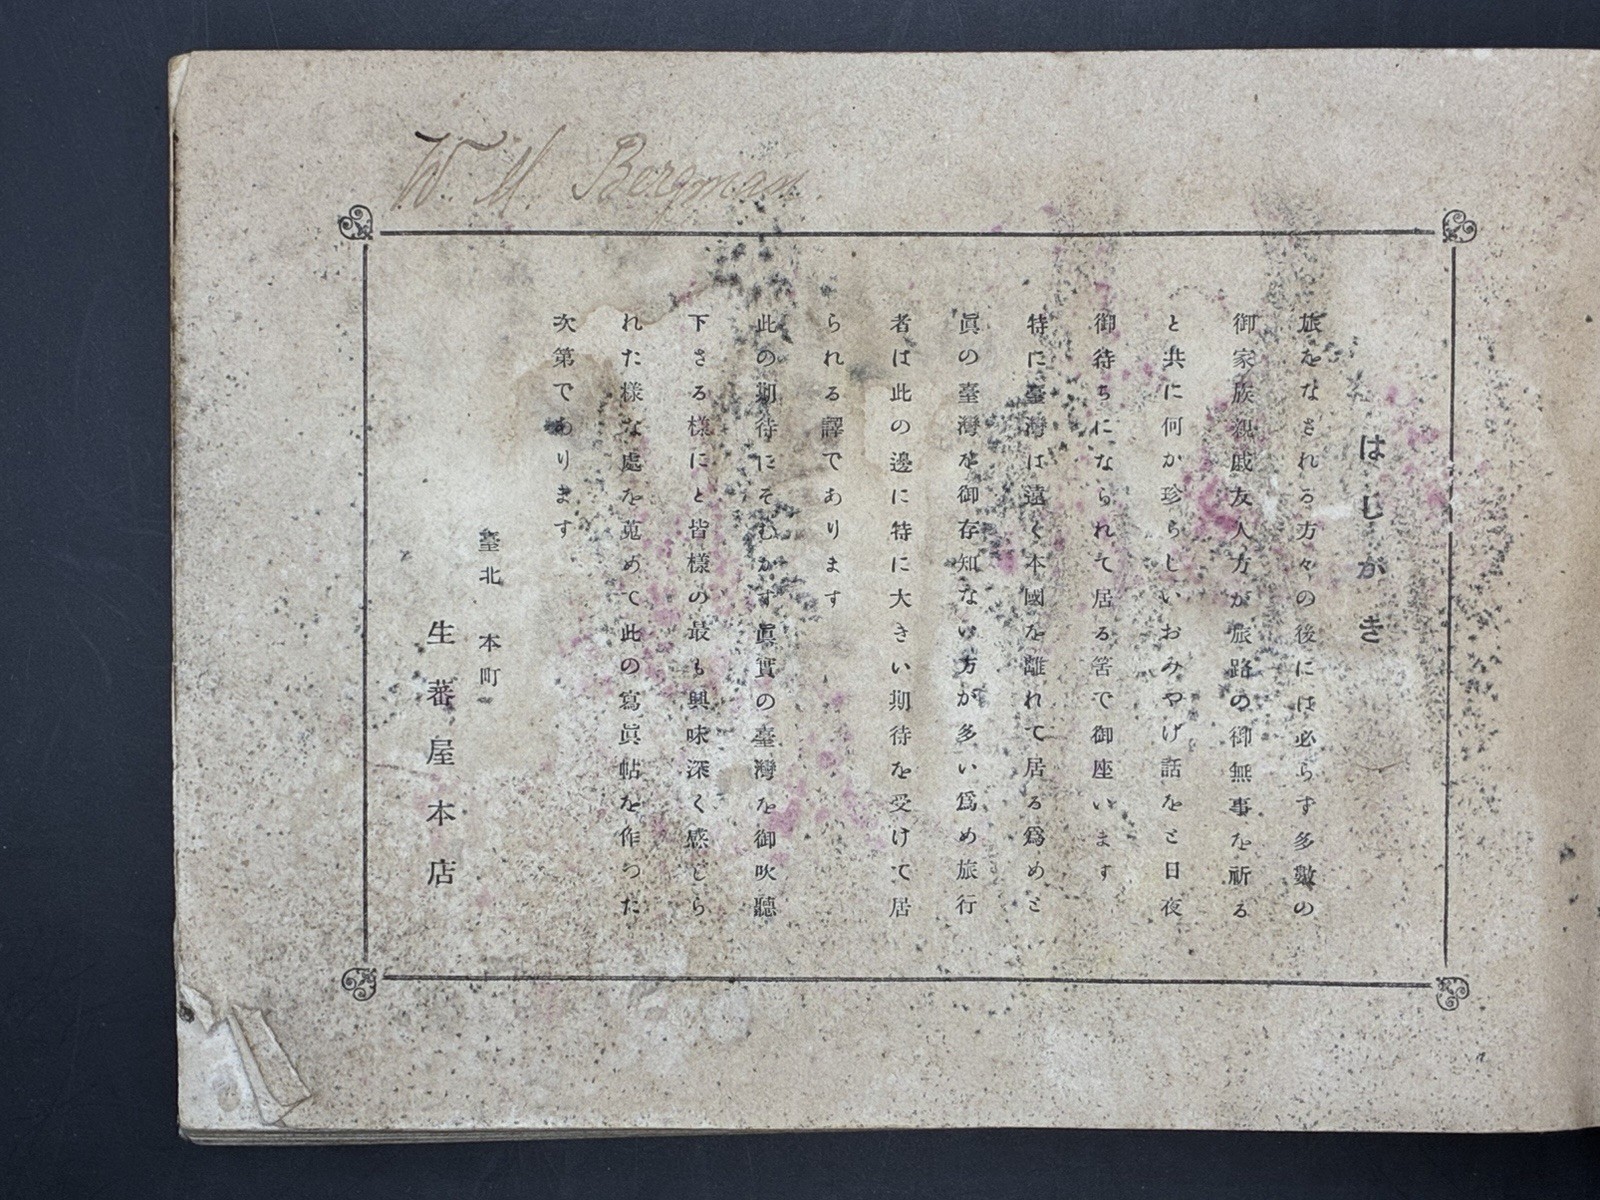 W. M. Bergman
はしがき
旅をなされる方々の後には必らず多數の
御家族親戚友人方が旅路の御無事を祈る
と共に何か珍らしいおみやげ話をと日夜
御待ちになられて居る筈で御座います
特に臺灣は遠く本國を離れて居る爲めと
眞の臺灣を御存知ない方が多い爲め旅行
者は此の邊に特に大きい期待を受けて居
られる譯であります
此の期待にそむかず眞實の臺灣を御吹聽
下さる樣にと皆樣の最も興味深く感じら
れた樣な處を蒐めて此の寫眞帖を作つた
次第であります
臺北 本町
生蕃屋本店